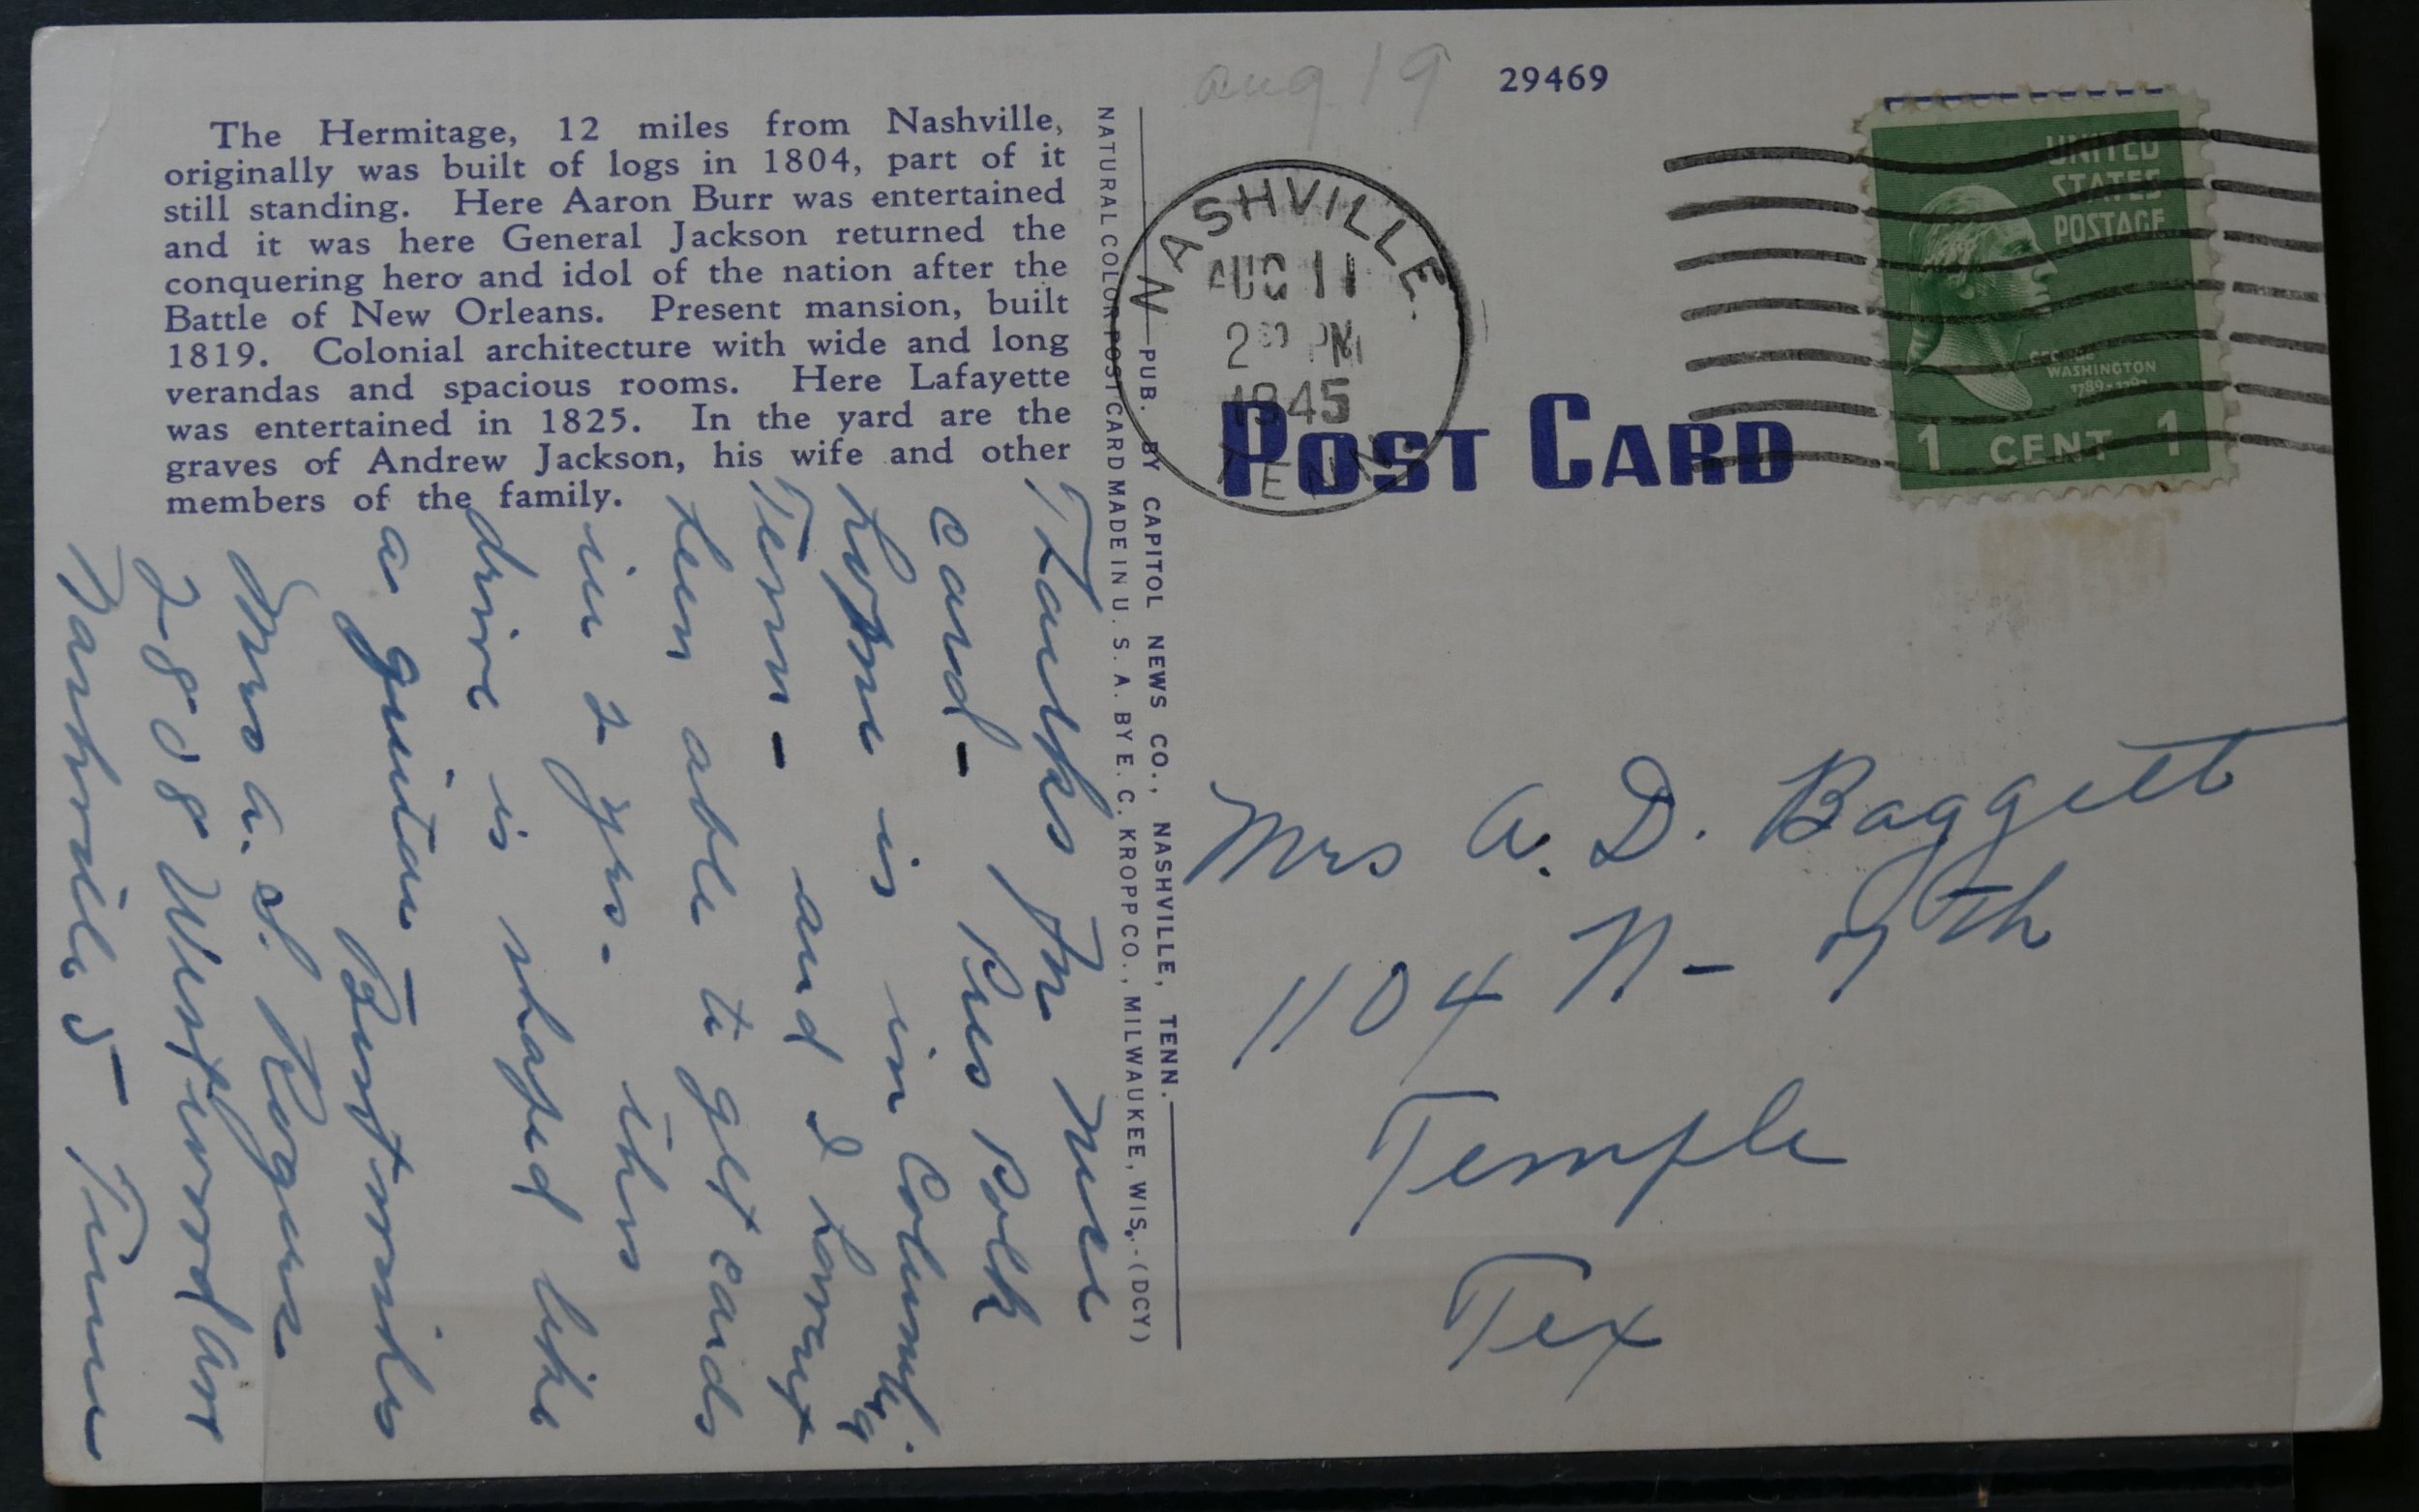 The Hermitage, 12 miles from Nashville,
originally was built of logs in 1804, part of it
still standing. Here Aaron Burr was entertained
and it was here General Jackson returned the
conquering hero and idol of the nation after the
Battle of New Orleans. Present mansion, built
1819. Colonial architecture with wide and long
verandas and spacious rooms. Here Lafayette
was entertained in 1825. In the yard are the
graves of Andrew Jackson, his wife and other
members of the family.
Thanks for nice
card- Pres Polk
home is in Columbia
Tenn - and I havent
been able to get cards
in 2 yrs. This
drive is shaped like
a guitar - Best wishes
Mrs a. S. Rogers
2808 Westwood Ave
Nashville 5- Tenn
NATURAL COLOR POST CARD MADE IN U. S. A. BY E. C. KROPP CO., MILWAUKEE, WIS. - (DCY)
PUB. BY CAPITOL NEWS CO., NASHVILLE, TENN.
aug 19
29469
NASHVILLE.
AUG 11
2 PM
1945
TENN
POST CARD
UNITED
STATES
POSTAGE
GEORGE
WASHINGTON
1789-1797
1 CENT 1
Mrs A. D. Baggett
1104 N- 7th
Temple
Tex